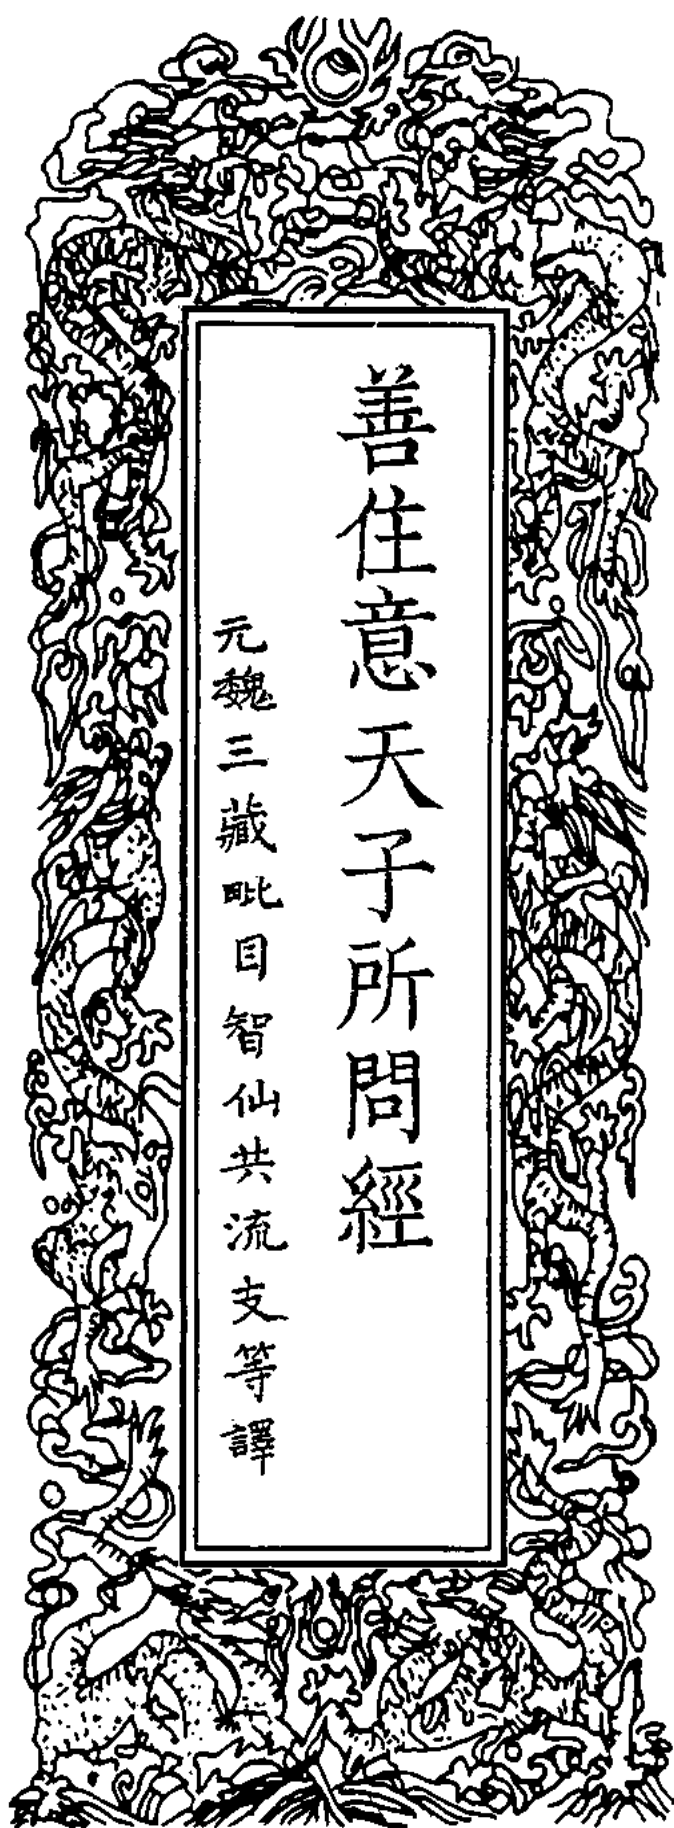 善住意天子所問經
元魏三藏毗目智仙共流支等譯